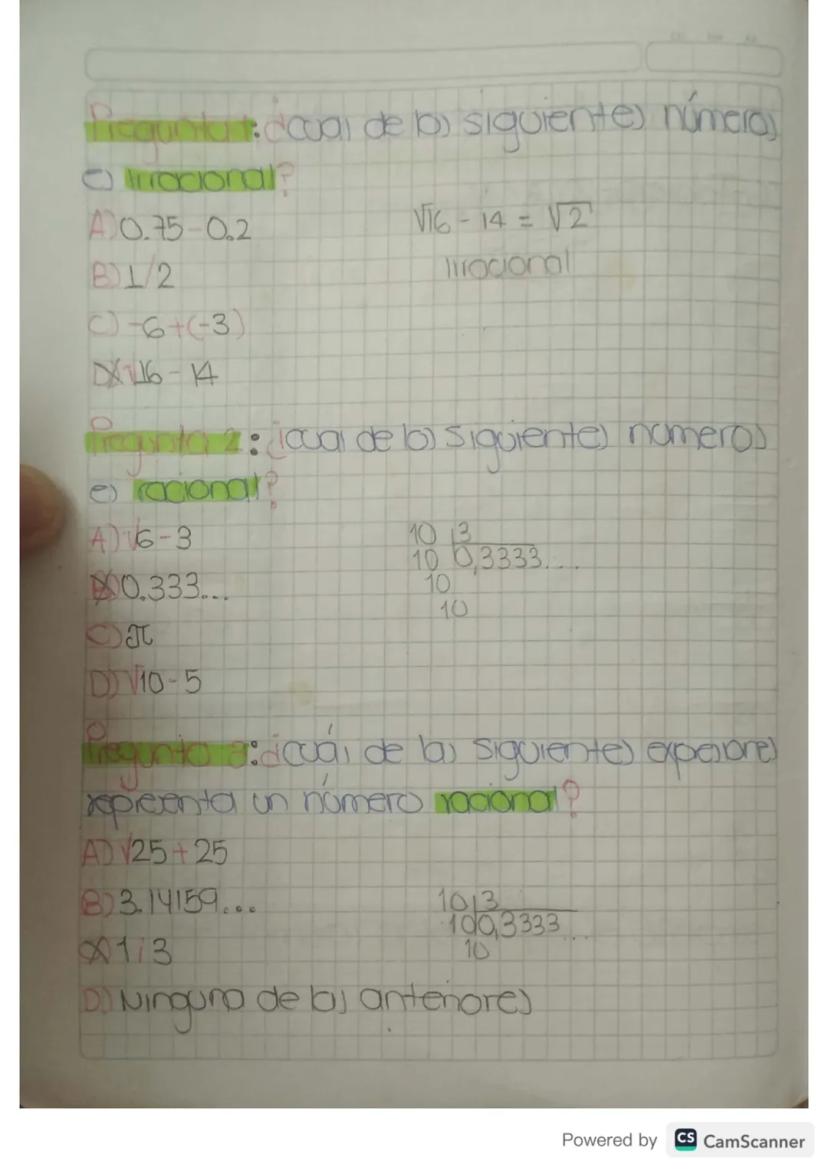 Pregunta 1: ¿cuál de los siguientes números
es irracional?
A) 0.75 - 0.2
√16 - 14 = √2
B) 1/2
Irracional
C) -6+(-3)
D) √16 - 14
Pregunta 2: ¿cual de los siguientes numeros
es racional?
A) √6 - 3
10 3
B) 0.333...
10 0,3333...
10
10
C) π
D) √10 - 5
Pregunta 3: ¿cuál de las siguientes expesiones
representa un número racional?
A) √25 + 25
B) 3.14159...
10 3
10 0,3333...
C) 1/3
10
D) Ninguno de los anteriores
Powered by CS CamScanner